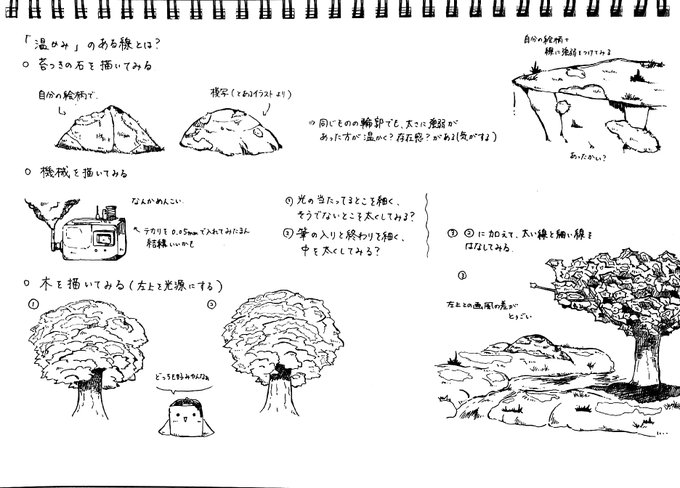 「温かみ」のある線とは?
○ 苔つきの石を描いてみる
自分の絵柄で、
模写(とあるイラストより)
⇒ 同じものの輪郭でも、太さに強弱が
あった方が温かく?存在感?がある(気がする)
自分の絵柄で
線に強弱をつけてみる
あったかい?
○ 機械を描いてみる
なんかめんこい。
テカリを0.05mmで入れてみたるん
結構いいかも
① 光の当たってるとこを細く、
そうでないとこを太くしてみる?
② 筆の入りと終わりを細く、
中を太くしてみる?
③ ②に加えて、太い線と細い線を
はなしてみる。
○ 木を描いてみる(左上を光源にする)
①
②
どっちも好みやんなぁ
③
左上との画風の差が
とぅごい